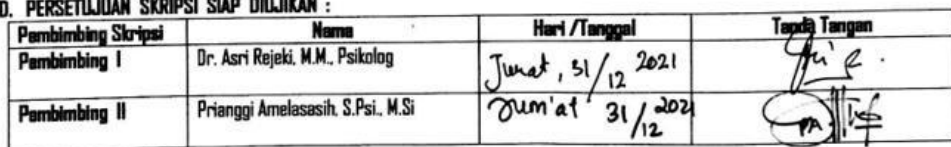 D. PERSETUJUAN SKRIPSI SIAP DIUJIKAN :
Pembimbing Skripsi Nama Hari /Tanggal Tanda Tangan
Pembimbing I Dr. Asri Rejeki, M.M., Psikolog Jumat, 31/12 2021
Pembimbing II Prianggi Amelasasih, S.Psi., M.Si Jum'at 31/12 2021 PA